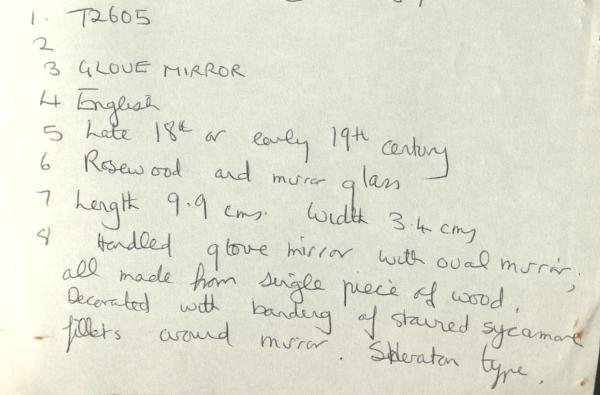 1. T2605
2
3 GLOVE MIRROR
4 English
5 Late 18th or early 19th century
6 Rosewood and mirror glass
7 Length 9.9 cms. Width 3.4 cms
8 Handled glove mirror with oval mirror;
all made from single piece of wood.
Decorated with banding of stained sycamore
fillets around mirror. Sheraton type.